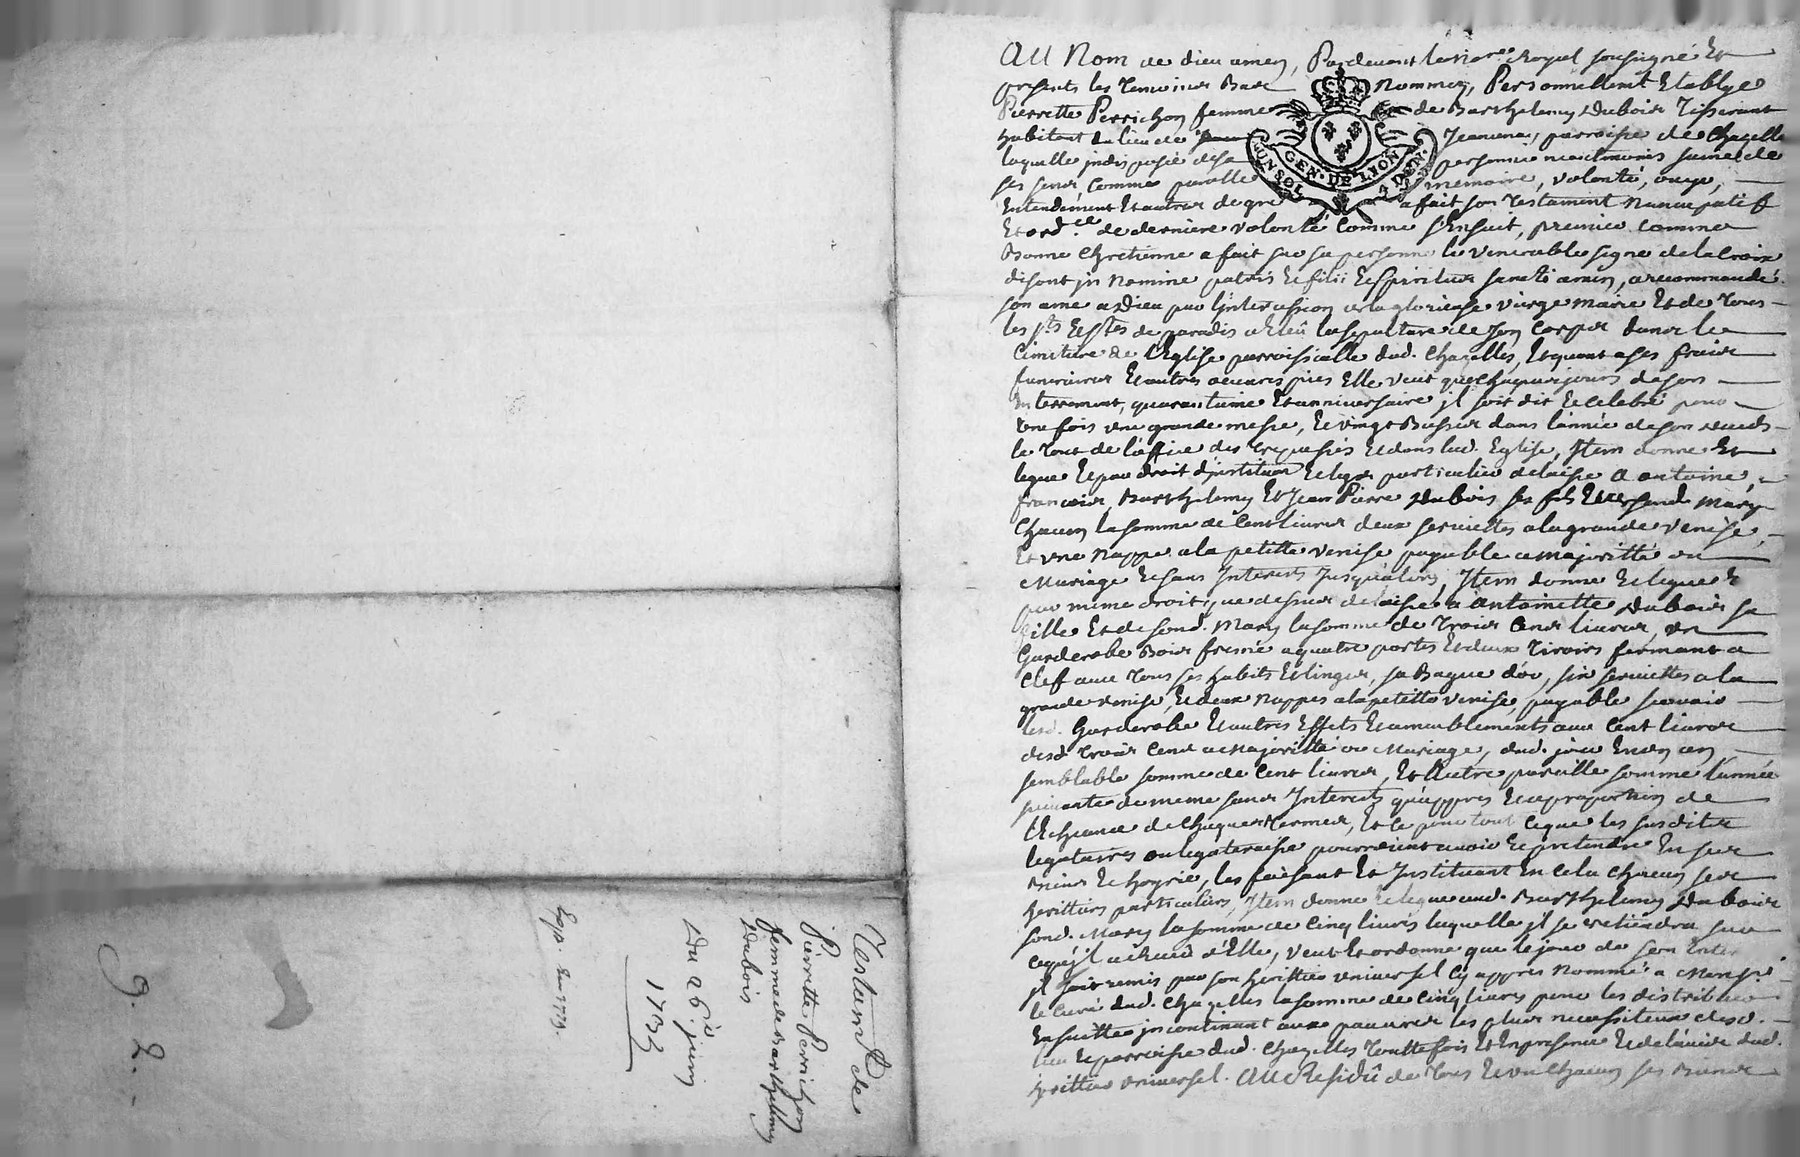 Testamt de
Pierrette Perrichon
femme de Barthellemy
Dubois
Du 26e juin
1733
Exp. du 1773.
9. 2.
AU Nom de dieu amen, Pardevant le no.re Royal soussigné Et
presents les temoins Bas Nommez, Personnellement Etablye
Pierrette Perrichon femme de Barthelemy Dubois Tisserant
habitant du lieu de parroisse de Chazelle
laquelle indisposée de sa personne neantmoins saine de
ses sens, comme parolle memoire, volonté, ouye,
Entendement Et autres de gré a fait son Testament Nuncupatif
Et ord.ce de derniere volonté comme s'Ensuit, premier comme
Bonne Chretienne a fait sur sa personne le venerable signe de la Croix
disant in Nomine patris Et filii Et Spiritus sancti amen, a recommandé
son ame a Dieu par l'intercession de la glorieuse vierge marie Et de Tous
les sts Et stes de paradis a Eleu la sepulture de son Corps dans le
Cimitiere de l'Eglise parroissialle dud. Chazelles, Et quant a ses frais
funeraires Et autres oeuvres pies Elle veut que chaques jours de son
Enterrement, quarantaine Et anniversaire il soit dit Et celebré pour
Une fois une grande messe, Et vingt Basses dans l'année de son deceds
le Tout de l'office des Trepassés Et dans lad. Eglise, Item donne Et
legue Et par droit d'institution Et legs particulier delaisse a antoine,
francois, Barthelemy Et Jean Pierre Dubois ses fils Et de sond. Mary
Chacun la somme de Cent livres deux serviettes a la grande venise,
Et une Nappe a la petitte venise payable a majoritté ou
Mariage Et sans Interests Jusqu'alors, Item donne Et legue Et
par meme droit que dessus delaisse a Antoinette Dubois sa
fille Et de sond. Mary la somme de Trois Cens livres, un
Garderobe Bois fresne a quatre portes Et deux Tiroirs fermant a
Clef avec Tous ses habits Et linges, sa Bague d'or, six serviettes a la
grande venise, Et deux Nappes a la petitte venise, payable scavoir
lesd. Garderobe Et autres Effets Et ameublements avec Cent livres
desd. Trois Cens a Majoritté ou Mariage, dud. jour En un an
semblable somme de Cent livres, Et l'autre pareille somme l'année
suivante de meme sans Interests qu'appres Et a proportion de
l'Escheance de Chaques termes, Et ce pour tout ce que les susdites
legataires ou legateresse pourroient avoir Et pretendre En ses
Biens Et hoyrie, les faisant Et Instituant En cela Chacun ses
heritiers particuliers, Item donne Et legue aud. Barthelemy Dubois
sond. Mary la somme de Cinq livres laquelle il se retiendra sur
ce qu'il a Receu d'Elle, Veut Et ordonne que le jour de son Enter.
il soit remis par son heritier universel Cy appres Nommé a Monsr
le Curé dud. Chazelles la somme de Cinq livres pour les distribuer
Ensuitte incontinant aux pauvres les plus necessiteux desd.
lieu Et parroisse dud. Chazelles Touttefois Et En presence Et de l'avis dud.
heritier universel. AU Residû de Tous Et un Chacun ses Biens